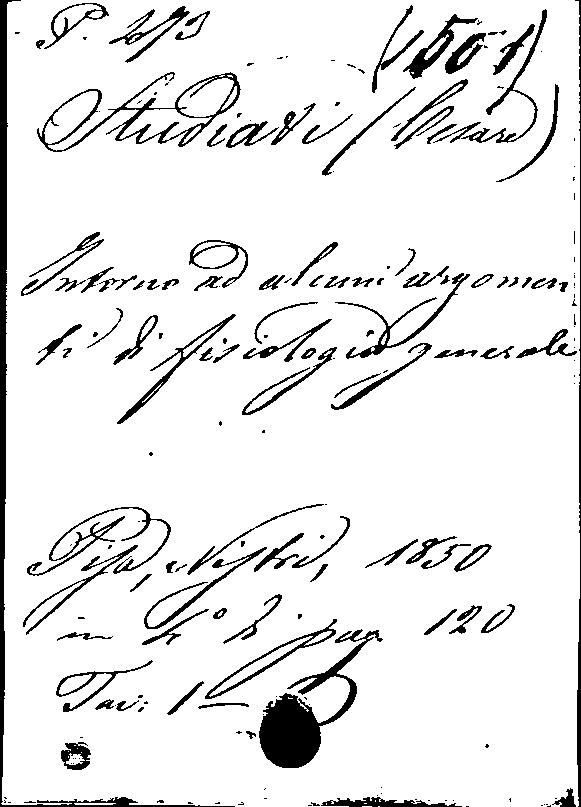 P. 273 (1501)
Studiati (Cesare)
Intorno ad alcuni argomen
ti di fisiologia generale
Pisa, Nistri, 1850
in 4° di pag. 120
Tav: 1